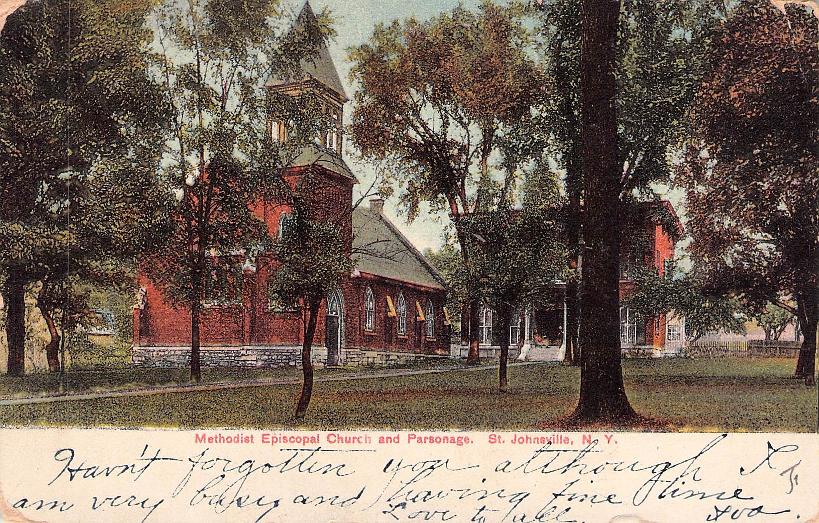 Methodist Episcopal Church and Parsonage. St. Johnsville, N. Y.
Havn't forgotten you although I
am very busy and having fine time
Love to all.